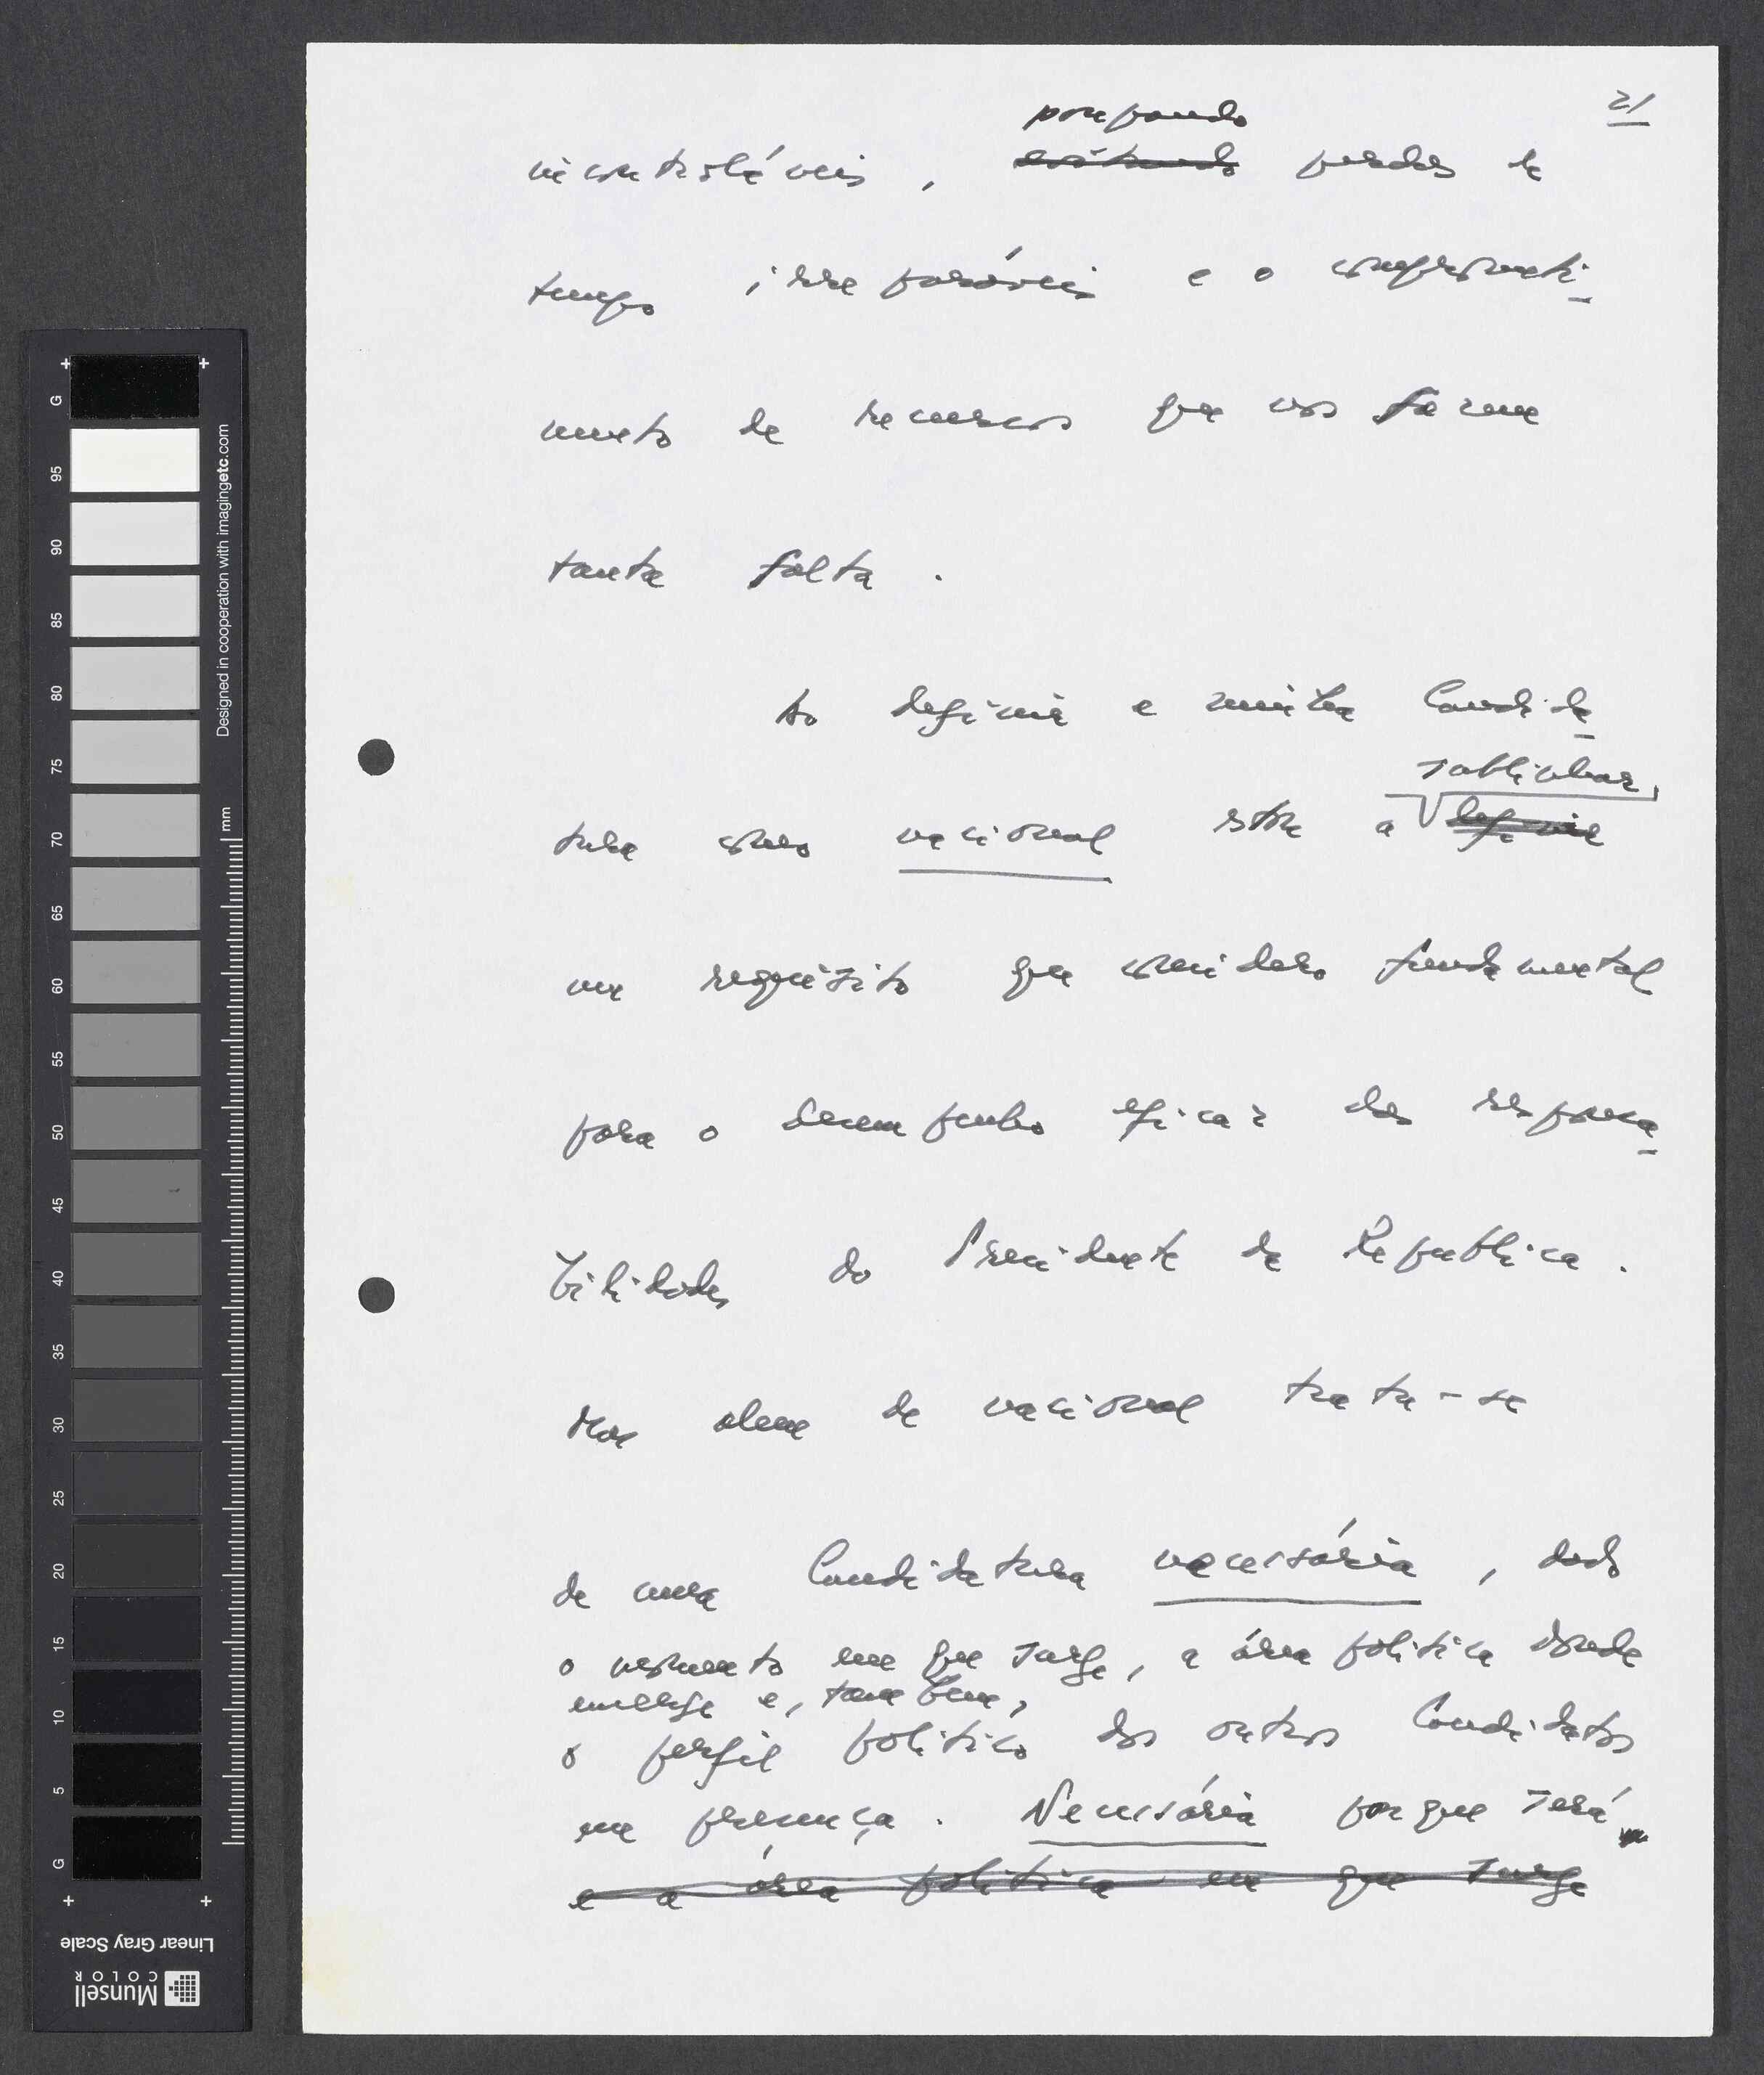 21
poupando
incontroláveis, evitando perdas de
tempo irreparáveis e o comprometi-
mento de recursos que nos fazem
tanta falta.
Ao definir a minha Candida-
sublinhar,
tura como nacional estou a definir
um requisito que considero fundamental
para o desempenho eficaz das responsa-
bilidades do Presidente da Republica.
Mas alem de nacional trata-se
de uma Candidatura necessária, dado
o momento em que surge, a área politica donde
emerge e, tambem,
o perfil politico dos outros Candidatos
em presença. Necessária porque será
e a área politica em que surge
G
95
90
85
80
75
70
65
60
55
50
45
40
35
30
25
20
15
10
5
G
mm
Designed in cooperation with imagingetc.com
Linear Gray Scale
Munsell
COLOR